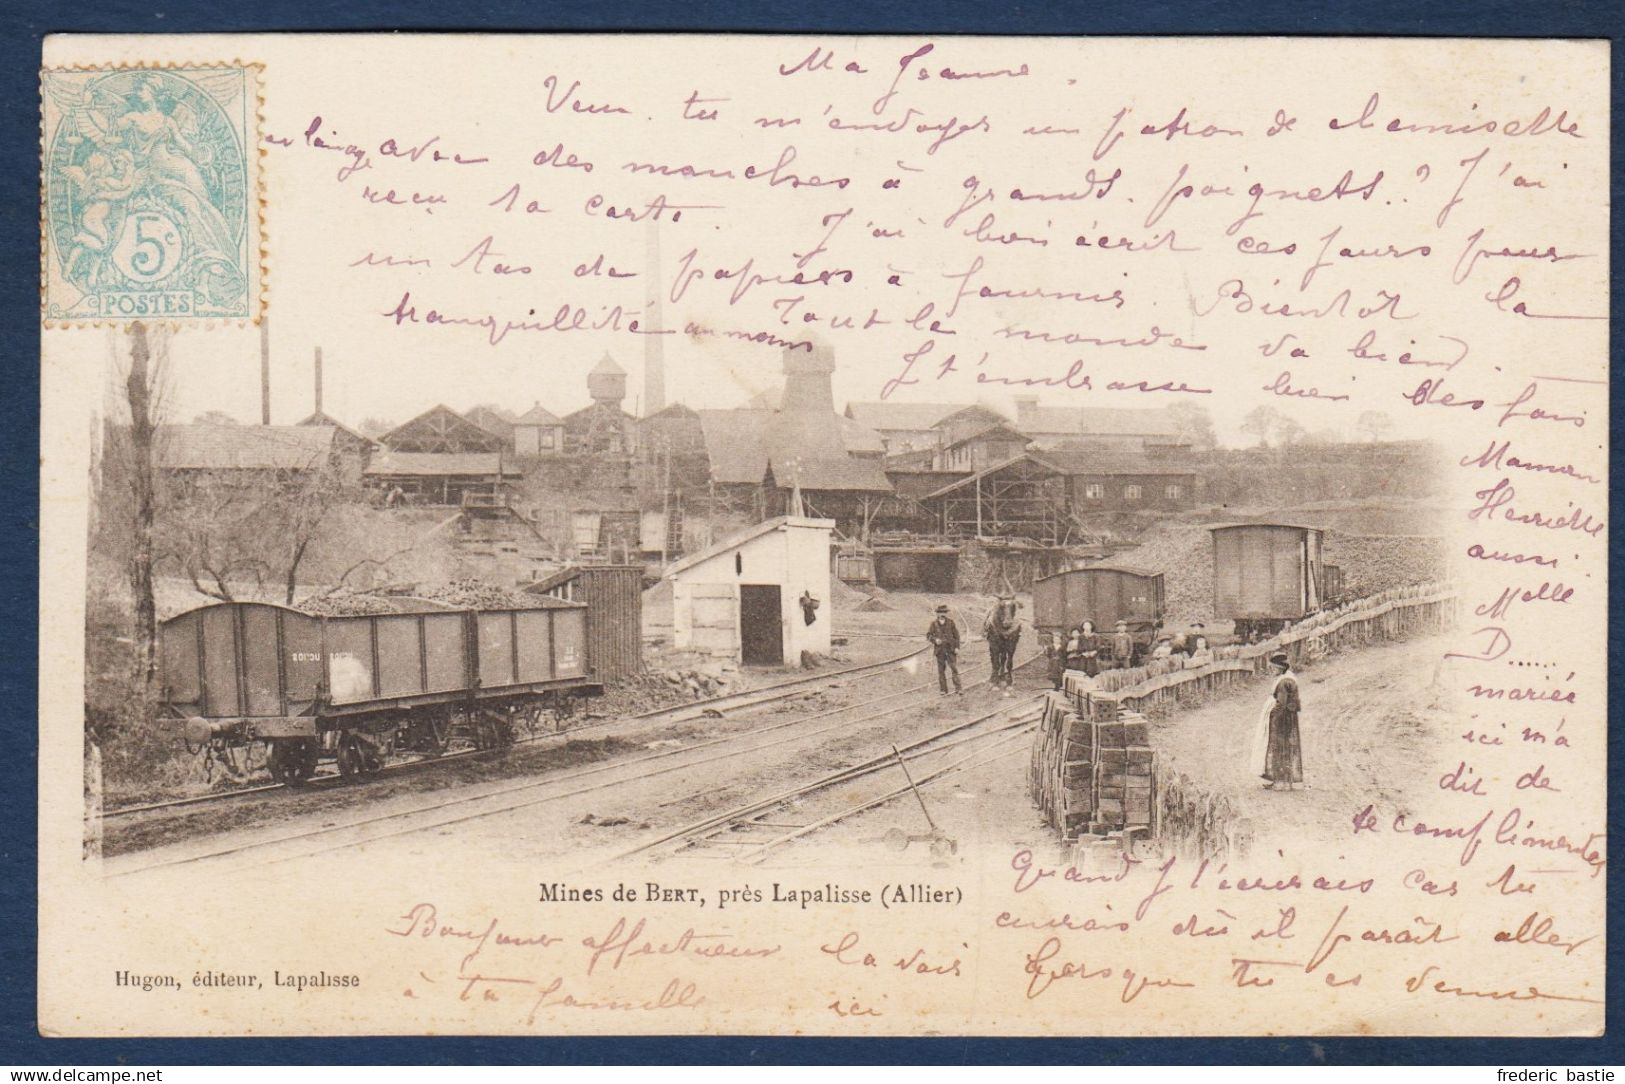 Ma Jeanne.
Veux-tu m'envoyer un patron de chemisette
avec des manches à grands poignets? J'ai
reçu ta carte. J'ai bien écrit ces jours pour
un tas de papiers à fournir. Bientôt la
tranquillité au moins Tout le monde va bien.
J t'embrasse bien des fois
Maman
Henriette
aussi.
Melle
D......
mariée
ici m'a
dit de
te complimenter
Quand j t'écrirais car tu
aurais dû il paraît aller
la voir lorsque tu es venue
ici
Bonjour affectueux
à ta famille
REPUBLIQUE FRANÇAISE
5c
POSTES
Mines de BERT, près Lapalisse (Allier)
Hugon, éditeur, Lapalisse
frederic bastie